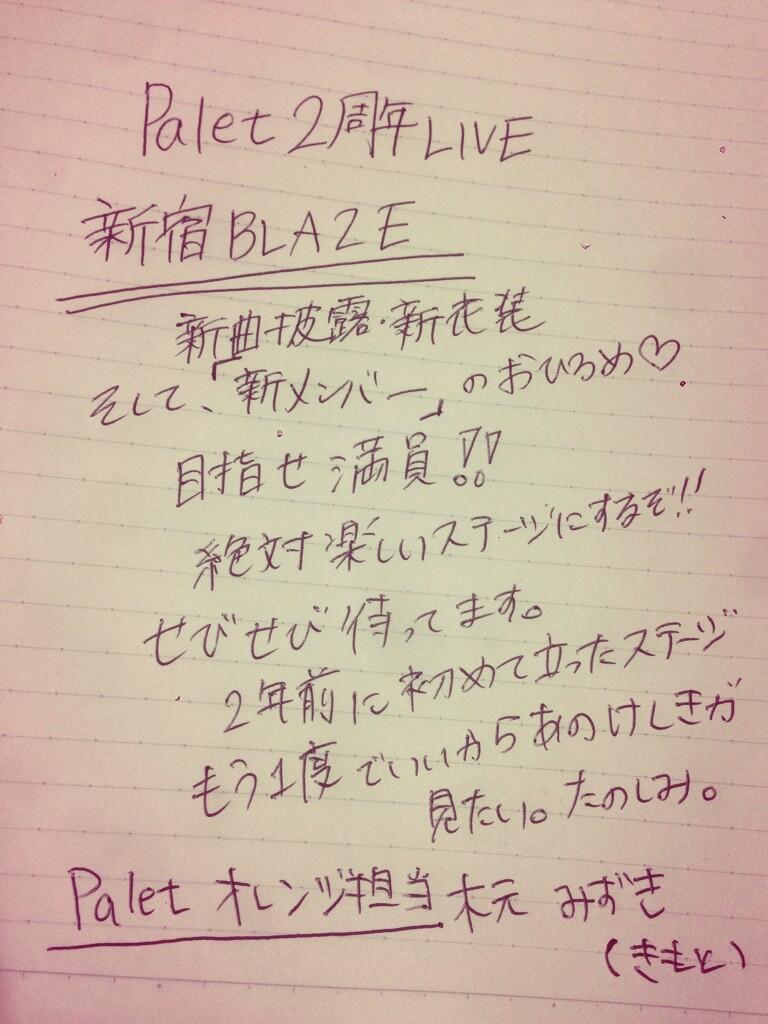 Palet 2周年 LIVE
新宿 BLAZE
新曲披露・新衣装
そして、「新メンバー」のおひろめ♡
目指せ 満員!!
絶対楽しいステージにするぞ!!
せびせび 待ってます。
2年前に初めて立ったステージ
もう1度でいいからあのけしきが
見たい。たのしみ。
Palet オレンジ担当 木元 みずき
(きもと)